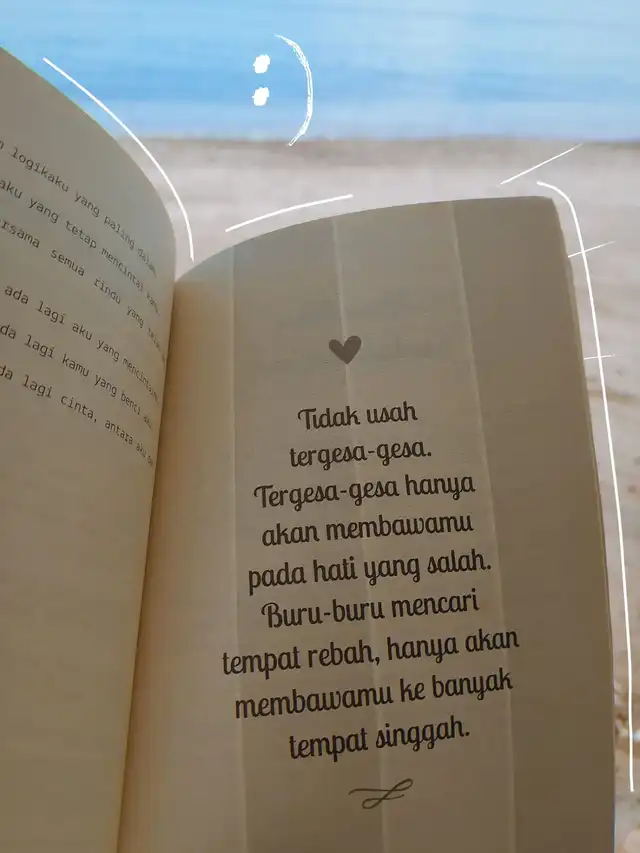 logikaku yang paling dalam,
aku yang tetap mencintai kamu,
semua rindu yang
ada lagi aku yang mencintaimu,
lagi kamu yang benci aku,
lagi cinta, antara aku
:)
Tidak usah
tergesa-gesa.
Tergesa-gesa hanya
akan membawamu
pada hati yang salah.
Buru-buru mencari
tempat rebah, hanya akan
membawamu ke banyak
tempat singgah.